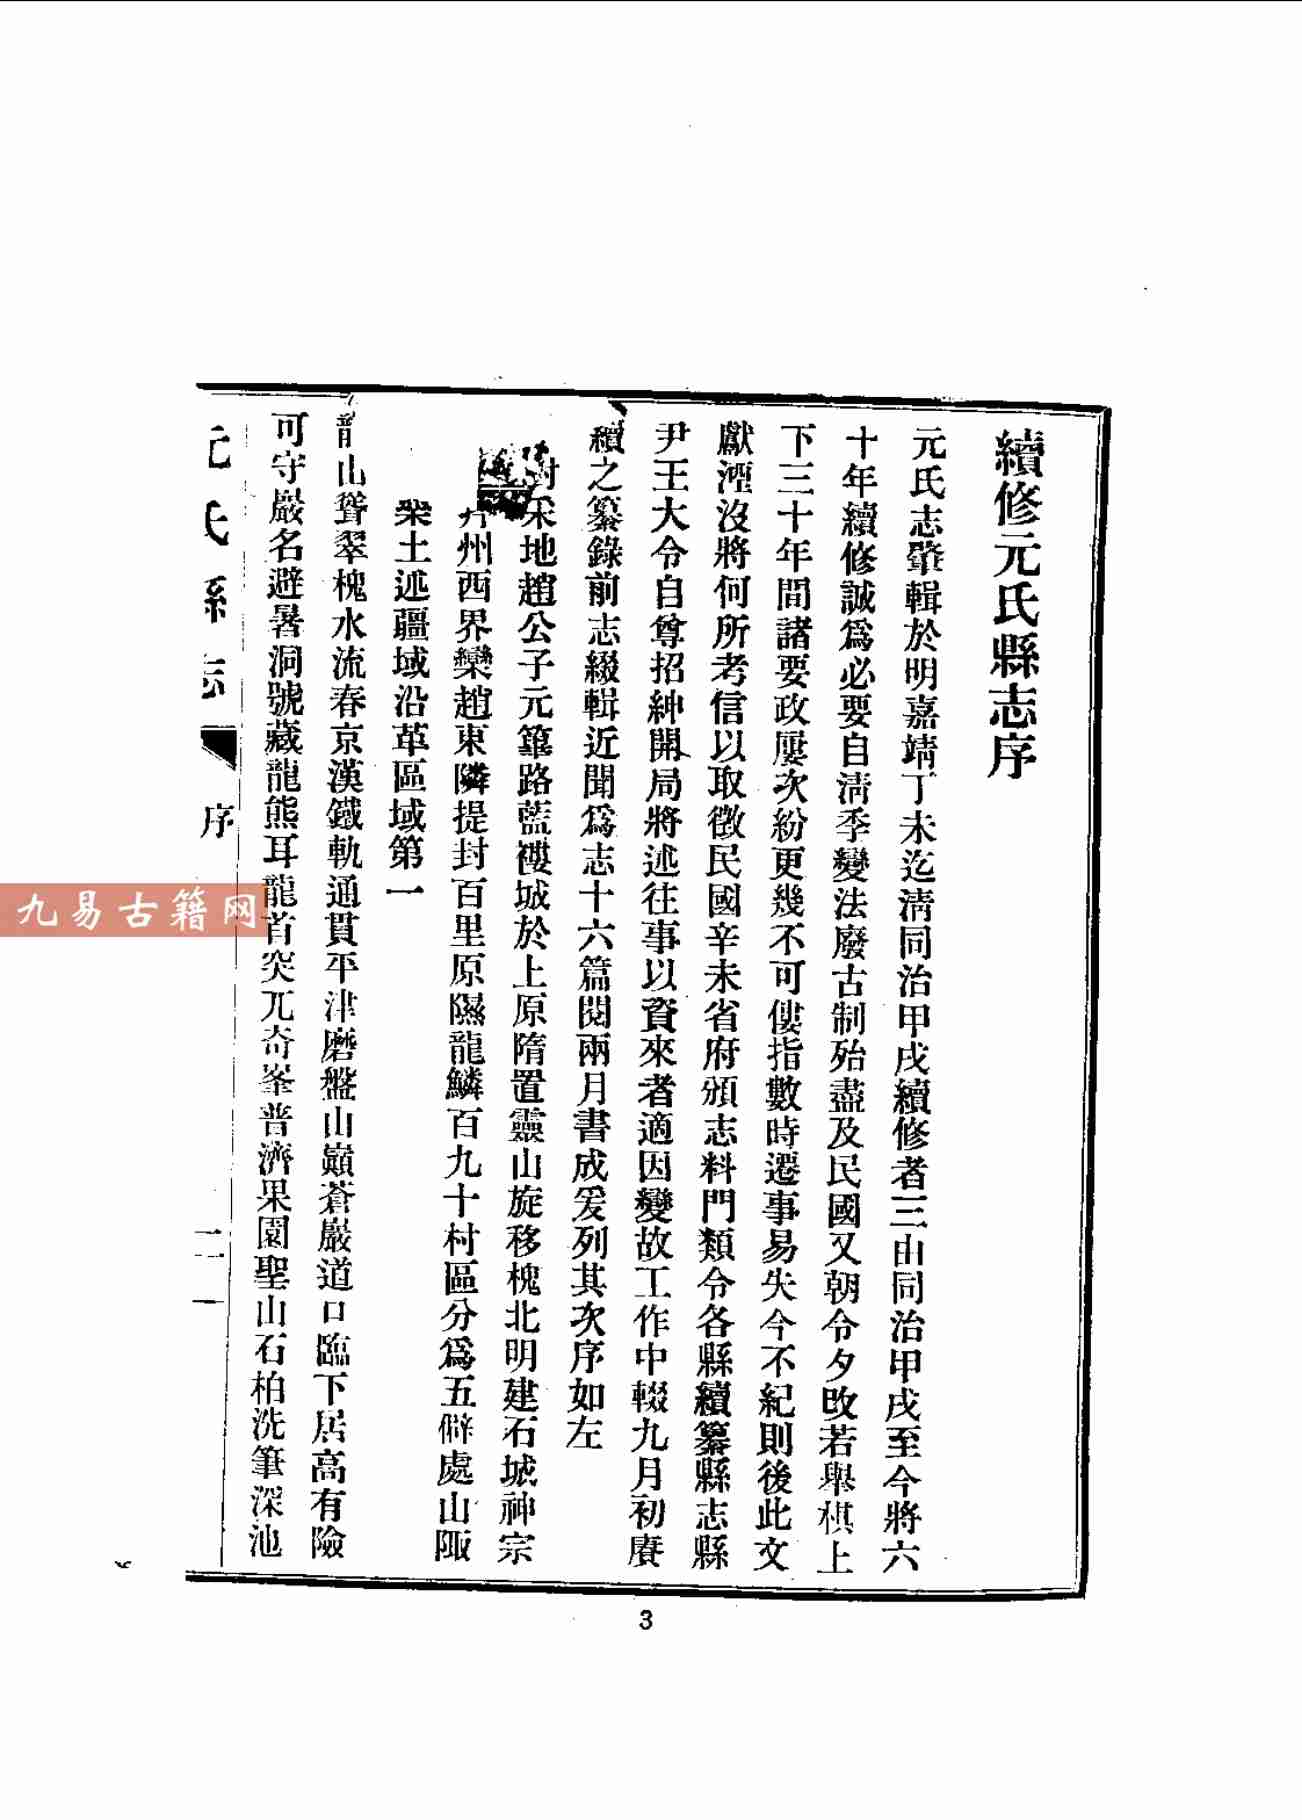 續修元氏縣志序
元氏志肇輯於明嘉靖丁未迄淸同治甲戌續修者三由同治甲戌至今將六
十年續修誠爲必要自淸季變法廢古制殆盡及民國又朝令夕改若舉棋上
下三十年間諸要政屢次紛更幾不可僂指數時遷事易失今不紀則後此文
獻湮沒將何所考信以取徵民國辛未省府頒志料門類令各縣續纂縣志縣
尹王大令自尊招紳開局將述往事以資來者適因變故工作中輟九月初賡
續之纂錄前志綴輯近聞爲志十六篇閱兩月書成爰列其次序如左
封宋地趙公子元篳路藍褸城於上原隋置靈山旋移槐北明建石城神宗
州西界欒趙東隣提封百里原隰龍鱗百九十村區分爲五僻處山陬
樂土述疆域沿革區域第一
龍山聳翠槐水流春京漢鐵軌通貫平津磨盤山巔蒼巖道口臨下居高有險
可守巖名避暑洞號藏龍熊耳龍首突兀奇峯普濟果園聖山石柏洗筆深池
元氏縣志
序
一
3
九易古籍网